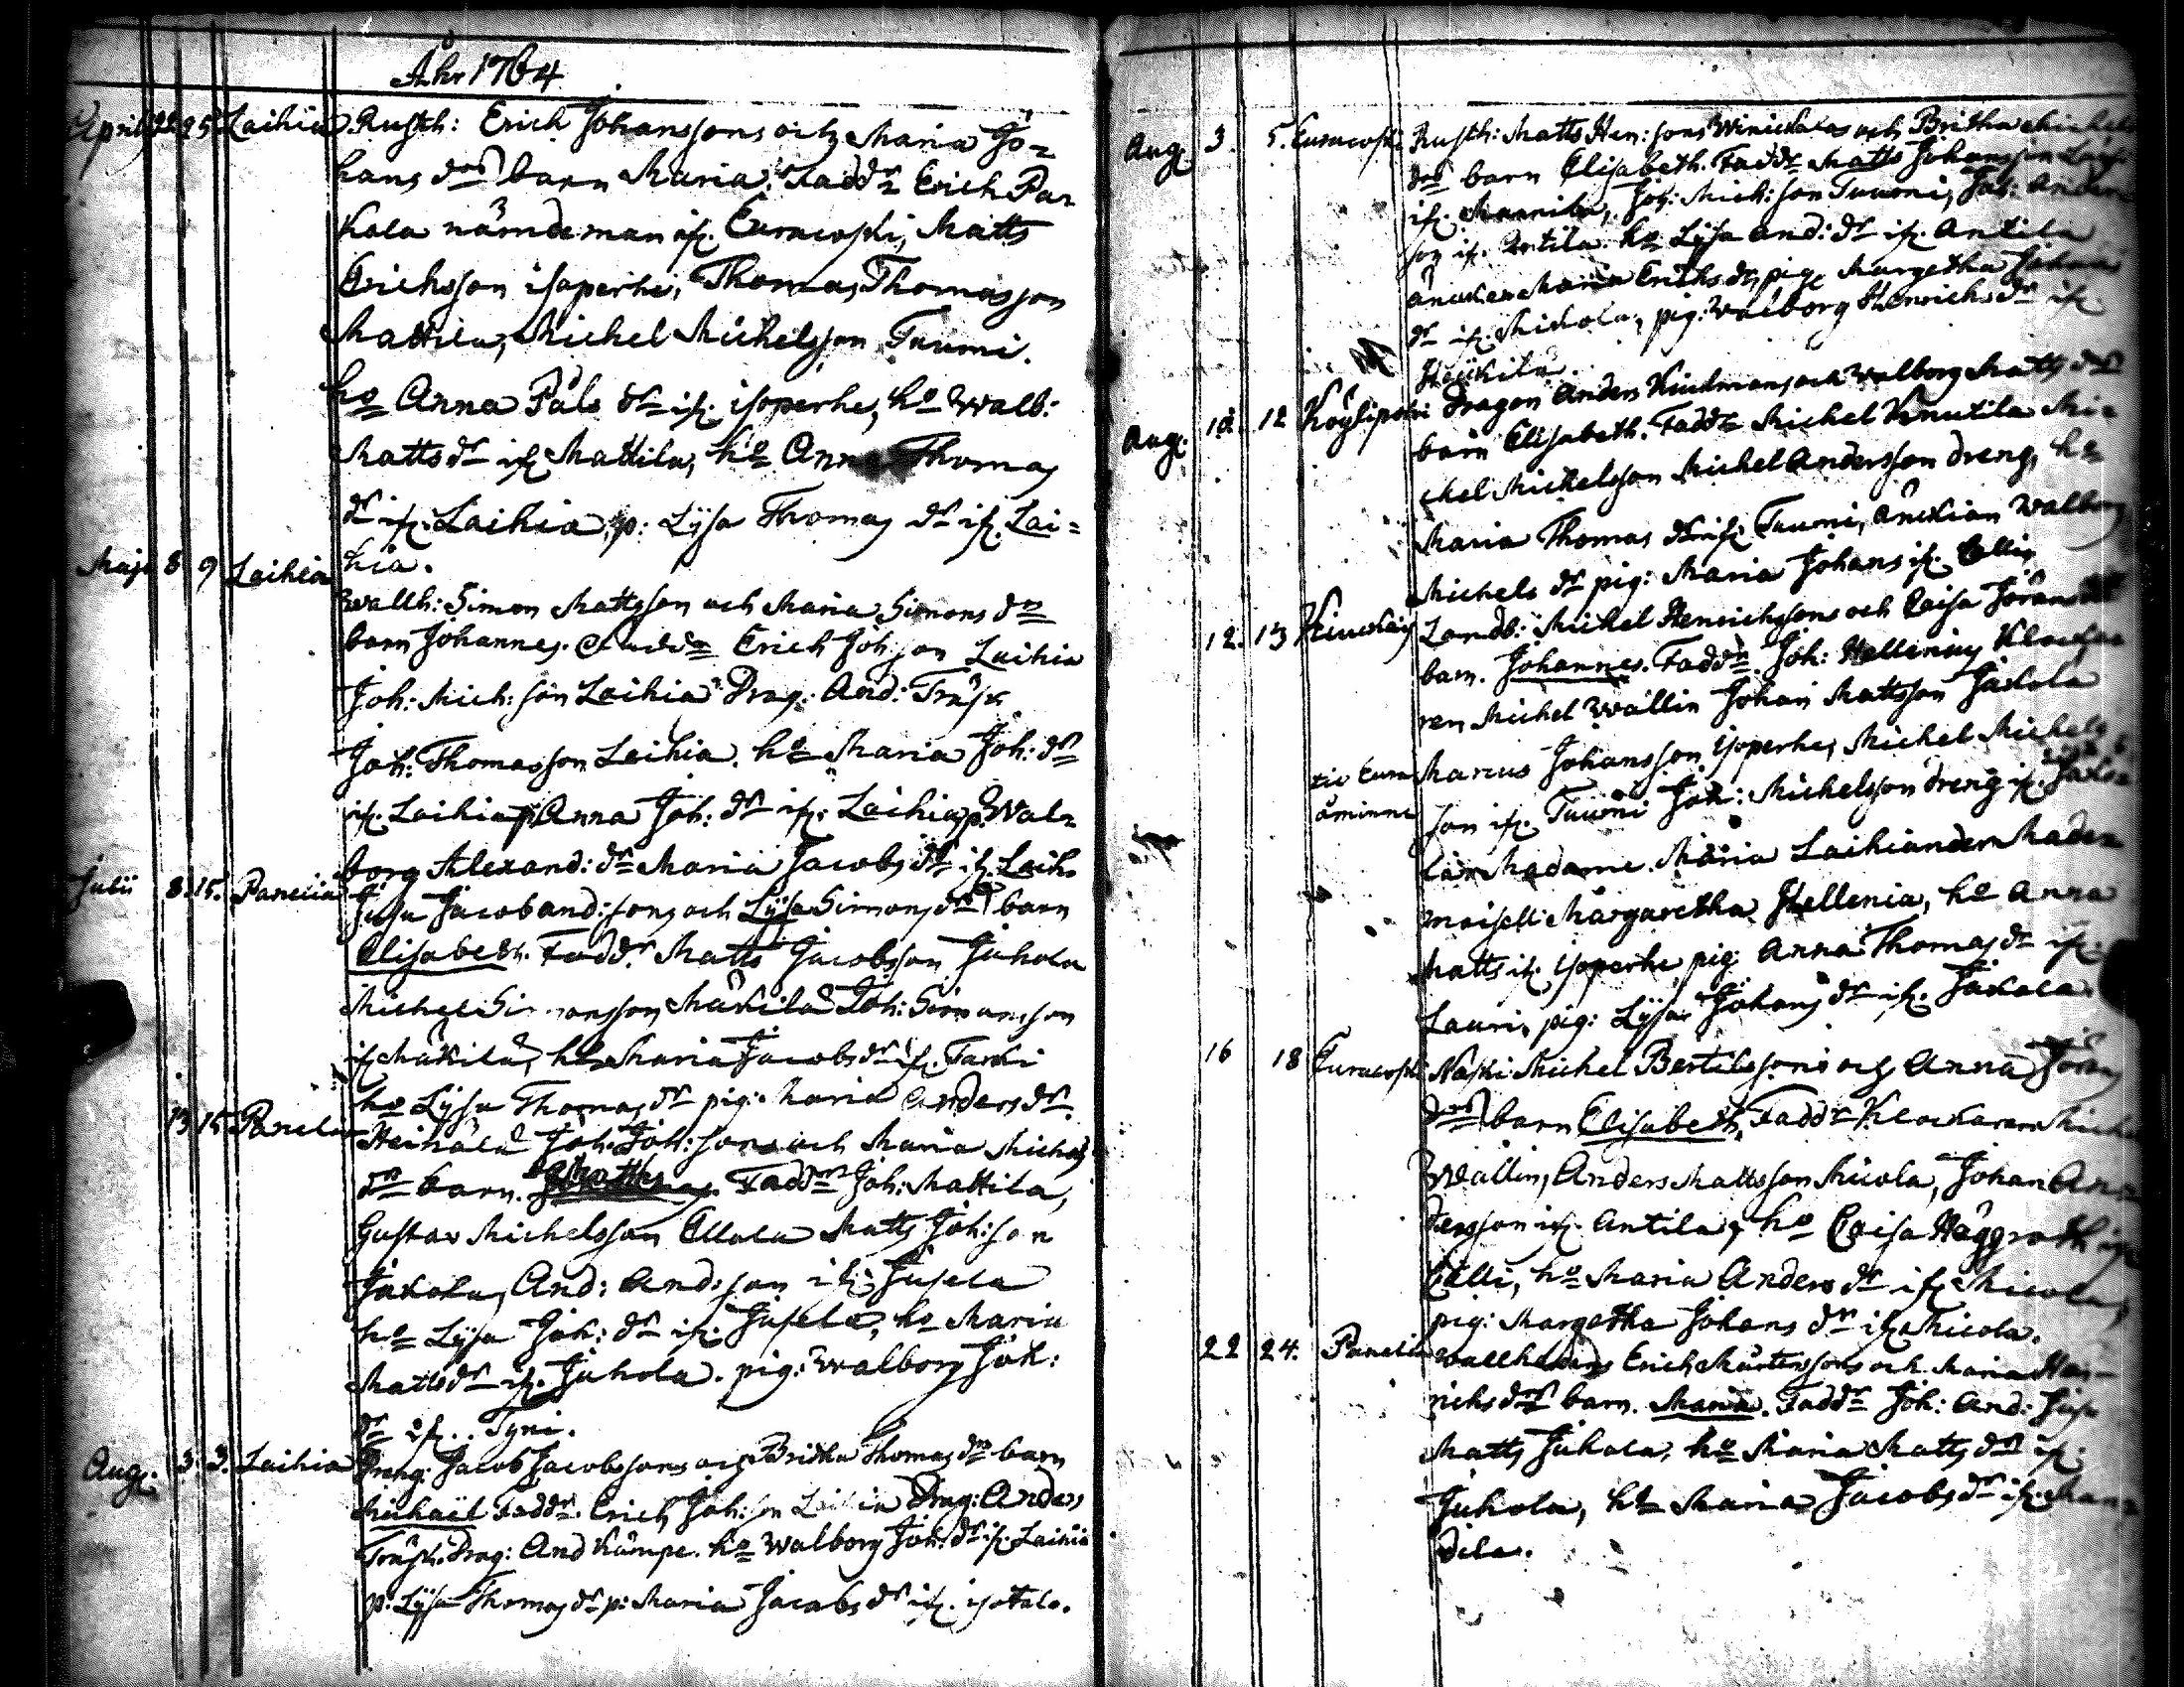 Åhr 1764
April 22 25 Laihia Rusth: Erich Johanssons och Maria Jo=
hans dr barn Maria. Faddr Erich Par
kola nämdeman if. Euracoski, Matts
Erichsson isoperhe, Thomas Thomasson
Mattila, Michel Michelsson Tuumi.
ho Anna Påls dr if. isoperhe, ho Walb:
Matts dr if. Mattila, ho Anna Thomas
dr if. Laihia, p: Lysa Thomas dr if. Lai=
hia.
Maji 8 9 Laihia Wallh: Simon Mattsson och Maria Simons dr
barn Johannes. Faddr Erich Joh:son Laihia
Joh: Mich:son Laihia Drag: And: Träsk
Joh: Thomasson Laihia. ho Maria Joh: dr
if. Laihia p: Anna Joh: dr if. Laihia p: Wal=
borg Alexand: dr Maria Jacobs dr if. Laih.
Julii 8. 15. Panelia Jusu Jacob And:sons och Lysa Simons dr barn
Elisabeth. Faddr Matts Jacobsson Juhola
Michel Simonsson Mäkilä Joh: Simonsson
if. Mäkilä, ho Maria Jacobs dr if. Tarki
ho Lysa Thomas dr pig: Maria Anders dr.
13 15 Panelia Heikälä Joh: Joh:sons och Maria Michels
dr barn. Matthias. Faddr Joh: Mattila,
Gustav Michelsson Ellola Matts Joh:son
Jakola, And: And:son if. Jusela
ho Lysa Joh: dr if. Jusela, ho Maria
Matts dr if. Juhola. pig: Walborg Joh:
dr if. Tyni.
Aug. 3. 3. Laihia Dreng: Jacob Jacobssons och Britha Thomas dr barn
Michaël Faddr. Erich Joh:son Laihia Drag: Anders
Träsk. Drag: And Kämpe. ho Walborg Joh: dr if. Laihia
p: Lysa Thomas dr p: Maria Jacobs dr if. isotalo.
Aug 3. 5. Euracoski Rusth: Matts Hen:sons Winickalas och Britha Michels
drs barn Elisabeth. Faddr Matts Johansson
if. Mannila, Joh: Mich:son Tuumi, Joh: Anders
son if. Antila. ho Lysa And: dr if. Antila
änckan Maria Erichs dr, pig: Margetha Johans
dr if. Mickola, pig: Walborg Henrichs dr if.
Heickilä.
Aug. 10. 12 Köylipolvi Dragon Anders Kindmans och Walborg Matts dr
barn Elisabeth. Faddr Michel Knutila Mi=
chel Michelsson Michel Andersson dreng, ho
Maria Thomas dr if. Tuumi, änckian Walborg
Michels dr pig: Maria Johans if. Cellis
12. 13 Kiuckais Landb: Michel Henrichssons och Caisa Jörans dr
barn. Johannes. Faddr. Joh: Hellenius Klocka=
ren Michel Wallin Johan Mattsson Jakola
til Eura Marcus Johansson Isoperhe, Michel Michels
åminne son if. Tuomi Joh: Michelsson dreng if. Jako=
la Madame. Maria Laihiander Made=
moisell: Margaretha Hellenia, ho Anna
Matts if. Isoperhe pig: Anna Thomas dr if.
Lauri, pig: Lysa Johans dr if. Jakola.
16 18 Euracoski Näski: Michel Bertilssons och Anna Jörans
drs barn Elisabeth, Faddr Klockaren Michel
Wallin, Anders Mattsson Micola, Johan An=
dersson if. Antila, ho Caisa Häggroth if.
Cälli, ho Maria Anders dr if. Micola,
pig: Margetha Johans dr if. Micola.
22 24. Panelia Wallhdens Erich Mårtenssons och Maria Hen=
richs drs barn. Maria. Faddr Joh: And: Jusu
Matts Juhola, ho Maria Matts dr if.
Juhola, ho Maria Jacobs dr if. Man=
dila.